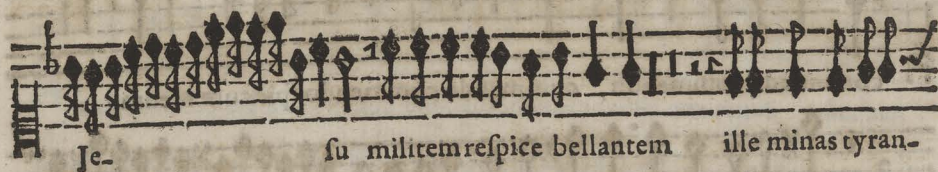 Je- ſu militem reſpice bellantem ille minas tyran-